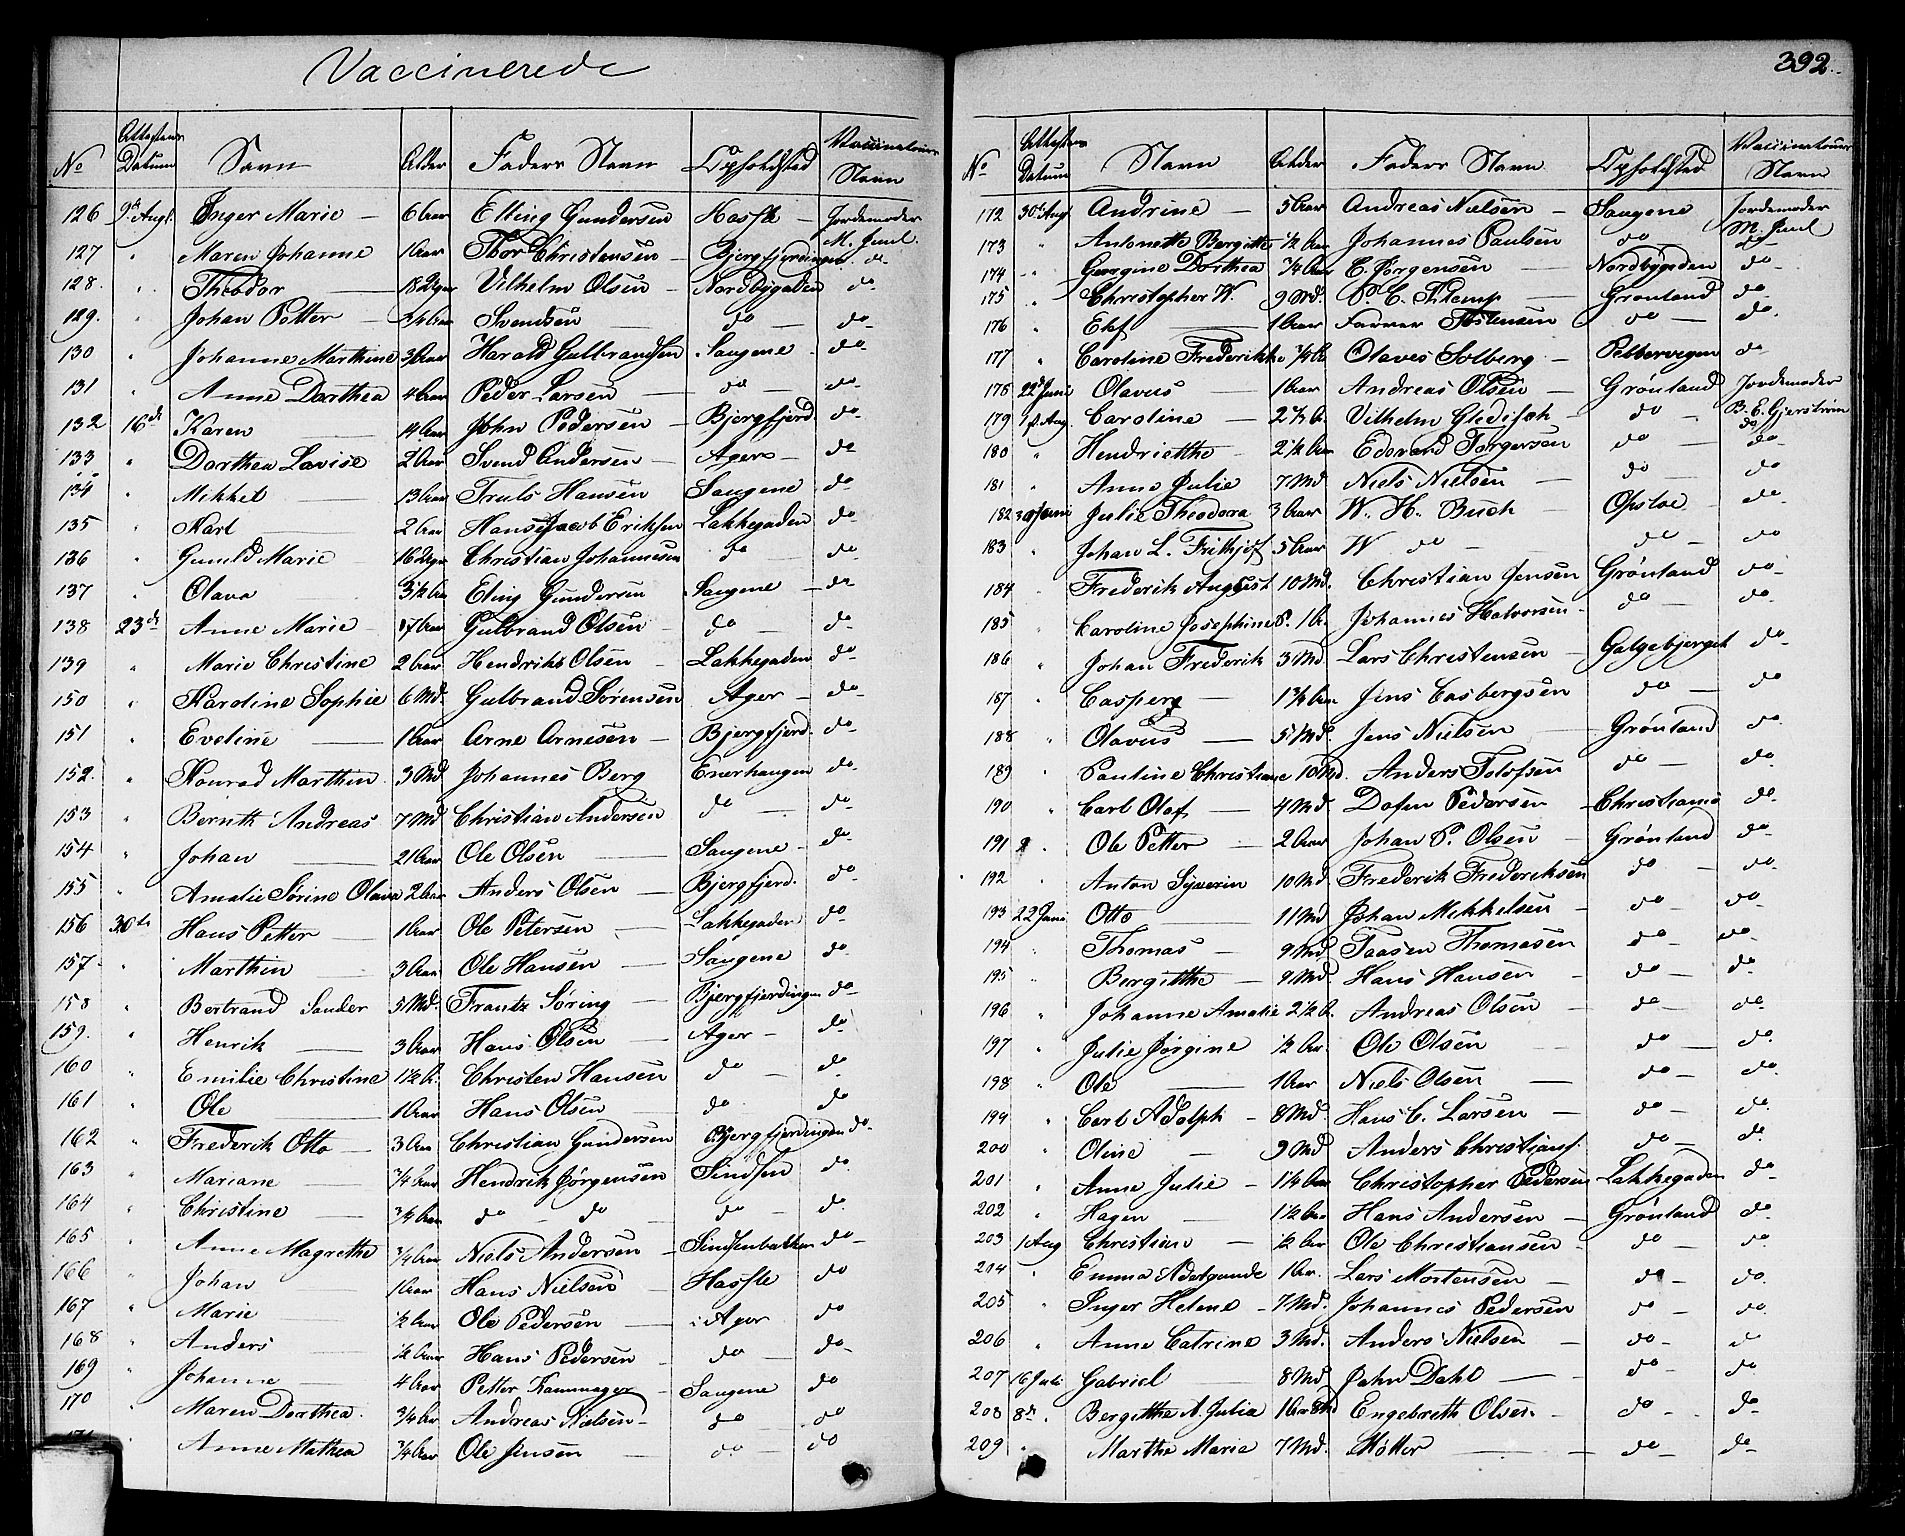 Vaccinerede
No Attestens Datum Navn Alder Faders Navn Opholdsted Vaccinateurs Navn
126 9de Augt. Inger Marie — 6 Aar Elling Gundersen Hasfle — Jordemoder M. Juul
127 " Maren Johanne 1 Aar Thor Christensen — Bjergfjerdingen do
128. " Theodor — 18 Uger Vilhelm Olsen — Nordbygaden do
129. " Johan Petter — 3/4 Aar Svendsen — do — do
130 " Johanne Marthine 3 Aar Harald Gulbrandsen Saugene do
131 " Anne Dorthea 4 Aar Peder Larsen — do — do
132 16de Karen — 4 Aar John Pedersen — Bjergfjerd. do
133 " Dorthea Lovise 2 Aar Svend Andersen — Agers — do
134 " Mikkel — 13 Aar Truls Hansen Saugene do
135 " Karl — 2 Aar Hans Jacob Eriksen Lakkegaden do
136 " Gunild Marie 16 Uger Christian Johannesen do do
137 " Olava 3 1/2 Aar Eling Gundersen Saugene — do
138 23de Anne Marie — 7 Aar Gulbrand Olsen — do — do
139 " Marie Christine 2 Aar Hendrik Olsen — Lakkegaden do
150 " Karoline Sophie 6 Md. Gulbrand Sørensen Ager — do
151 " Eveline — 1 Aar Arne Arnesen — Bjergfjerd. do
152. " Konrad Marthin 3 Md Johannes Berg Enerhaugen do
153 " Bernth Andreas 7 Md Christian Andersen do — do
154 " Johan — 21 Aar Ole Olsen — Saugene — do
155 " Amalie Sørine Olava 2 Aar Anders Olsen — Bjergfjerd. do
156 30te Hans Petter — 1 Aar Ole Petersen — Lakkegaden do
157 " Marthin 3 Aar Ole Hansen — Saugene do
158 " Bertrand Sander 5 Md. Frantz Søring — Bjergfjerdingen do
159. " Henrik — 3 Aar Hans Olsen — Ager — do
160 " Emilie Christine 1 1/2 A. Christen Hansen do — do
161 " Ole — 1 Aar Hans Olsen — do — do
162 " Frederik Otto — 3 Aar Christian Gundersen Bjergfjerdingen do
163 " Mariane — 3/4 Aar Hendrik Jørgensen Sinsen do
164 " Christine — 3/4 Aar do — do do — do
165 " Anne Magrethe 3/4 Aar Niels Andersen — Sinsenbakken do
166 " Johan — 1 Aar Hans Nielsen — Hasfle do
167 " Marie 1/2 Aar Ole Pedersen — i Ager do
168 " Anders — 1/2 Aar Hans Pedersen — do — do
169 " Johanne — 4 Aar Petter Kammager — Saugene do
170 " Maren Dorthea 3/4 Aar Andreas Nielsen — do — do
" Anne Mathea 3/4 Aar Ole Jensen — do — do
392.
No Attestens Datum Navn Alder Faders Navn Opholdsted Vaccinateurs Navn
172 30te Aug. Andrine — 5 Aar Andreas Nielsen — Saugene Jordemoder M. Juul
173 " Antonette Bergitte 1/2 Aar Johannes Paulsen do do
174 " Georgine Dorthea 3/4 Aar C. Jørgensen — Nordbygaden do
175 " Christopher W. 9 Md. P. C. — Grønland do
176 " — 1 Aar Farver Tostensen do — do
177 " Caroline Frederikke 3/4 A Olaves Solberg — do
178 22de Juni Olavus — 1 Aar Andreas Olsen — Grønland Jordemoder B. E. Gjerstrøm
179 1ste Aug. Caroline — 2 1/2 A. Vilhelm — do do
180 " Hendriette — 2 1/2 Aar Edevard Torgersen do — do
181 " Anne Julie 7 Md Niels Nielsen — do do
182 30 Juni Julie Theodora 3 Aar W. H. Buch — Opsloe do
183 " Johan L. Frithjof 5 Aar W do — do — do
184 " Frederik August 10 Md. Christian Jensen Grønland do
185 " Caroline Josephine P. 1 A. Johannes Halvorsen do — do
186 " Johan Frederik 3 Md Lars Christensen — Galgebjerget do
187 " Casper — 1 3/4 Aar Jens Casbergsen do — do
188 " Olavus — 5 Md. Jens Nielsen — Grønland do
189 " Pauline Christiane 10 Md. Anders Tolofsen do — do
190 " Carl Olaf — 4 Md Pedersen — Christiania do
191 " Ole Petter — 2 Aar Johan P. Olsen — Grønland do
192 " Anton Syverin 10 Md Frederik Frederiksen do — do
193 22 Juni Otto — 11 Md Johan Mikkelsen — do — do
194 " Thomas — 9 Md Thomasen do — do
195 " Bergitthe — 9 Md Hans Hansen — do — do
196 " Johanne Amalie 2 1/2 A. Andreas Olsen — do — do
197 " Julie Jørgine 1/2 Aar Ole Olsen — do — do
198 " Ole — 1 Aar Niels Olsen — do — do
199 " Carl Adolph — 8 Md. Hans C. Larsen — do — do
200 " Oline — 9 Md Anders Christians. do — do
201 " Anne Julie — 1 1/4 Aar Christopher Pedersen Lakkegaden do
202 " Hagen — 1 1/2 Aar Hans Andersen — Grønland do
203 1 Aug Christian — 1/2 Aar Ole Christiansen — do — do
204 " Emma Adelgunde 1 Aar. Lars Mortensen — do — do
205 " Inger Helene — 7 Md. Johannes Pedersen do — do
206 " Anne Catrine 3 Md. Anders Nielsen — do — do
207 16 Juli Gabriel — 8 Md John Dahl — do — do
208 8de " Bergitthe A. Julia 1 Aar 8 Md Engebreth Olsen. do — do
209 " Marthe Marie 7 Md. Møller — do — do